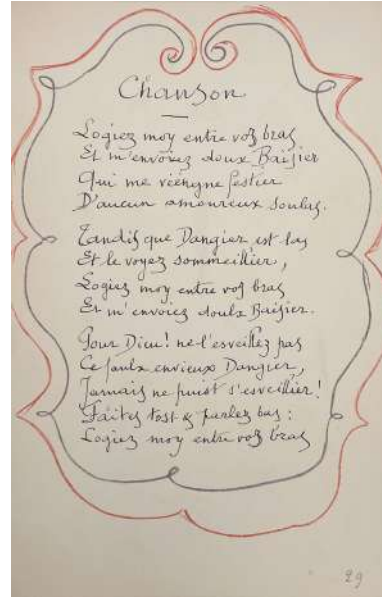 Chanson
Logiez moy entre voz braz
Et m'envoiez doux Baisier
Qui me viengne festier
D'aucun amoureux soulas.
Tandis que Dangier est las
Et le voyez sommeillier,
Logiez moy entre voz braz
Et m'envoiez doulx Baisier.
Pour Dieu! ne l'esveillez pas
Ce faulx envieux Dangier,
Jamais ne puist s'esveillier!
Faites tost & parlez bas:
Logiez moy entre voz braz
29